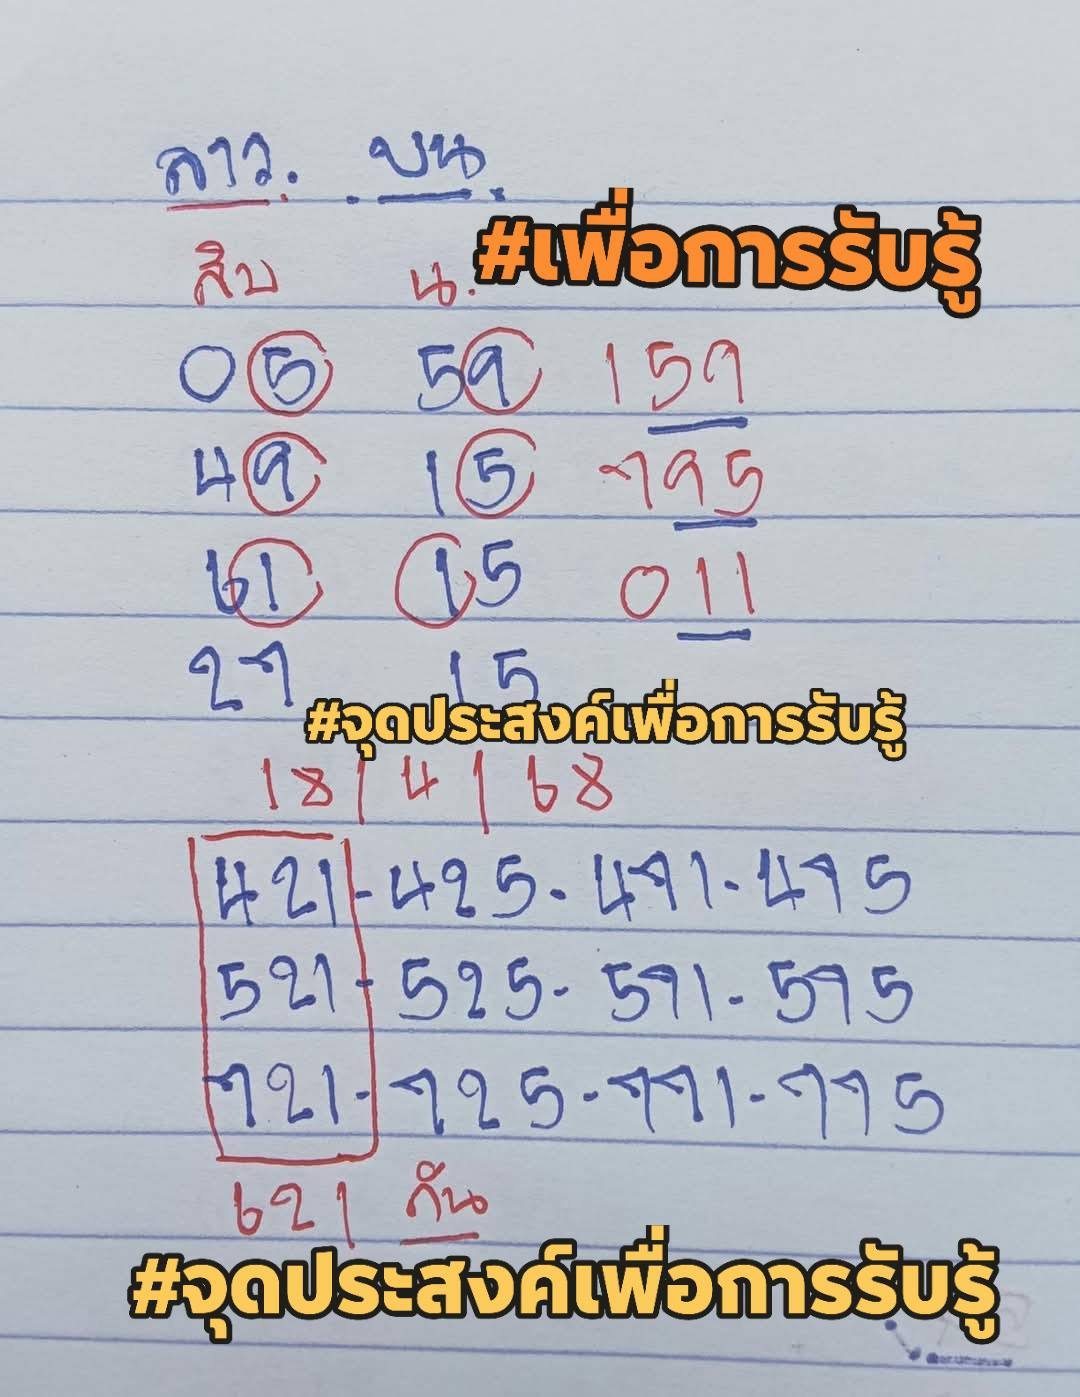 ลาว. .บน.
#เพื่อการรับรู้
สิบ น.
05 59 159
49 15 795
61 15 011
27 15
#จุดประสงค์เพื่อการรับรู้
18/4/68
421-425-471-475
521-525-571-575
721-725-771-775
621 กัน
#จุดประสงค์เพื่อการรับรู้